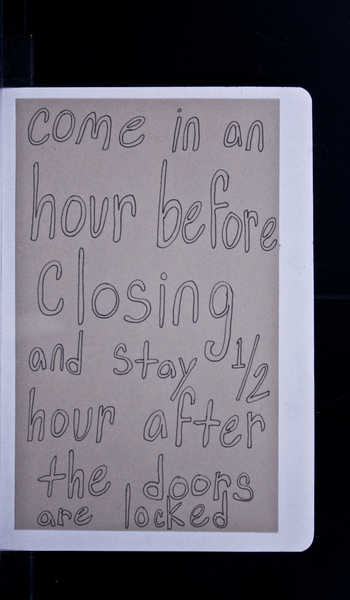 come in an
hour before
Closing
and stay 1/2
hour after
the doors
are locked